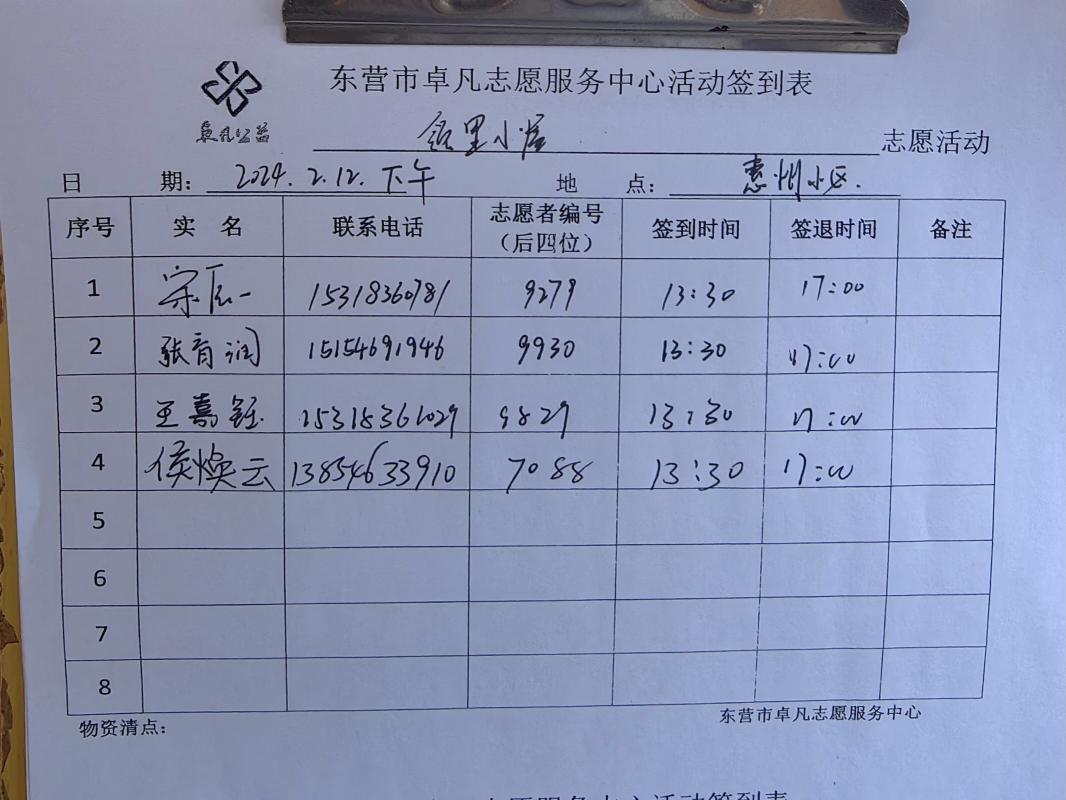 东营市卓凡志愿服务中心活动签到表
卓凡公益
邻里小屋 志愿活动
日 期: 2024.2.12.下午 地 点: 惠州小区.
序号 实 名 联系电话 志愿者编号（后四位） 签到时间 签退时间 备注
1 宗辰一 15318360781 9279 13:30 17:00
2 张育润 15154691946 9930 13:30 17:00
3 王嘉钰 15315361029 9829 13:30 17:00
4 侯焕云 13854633910 7088 13:30 17:00
5
6
7
8
物资清点: 东营市卓凡志愿服务中心
志愿服务中心活动签到表